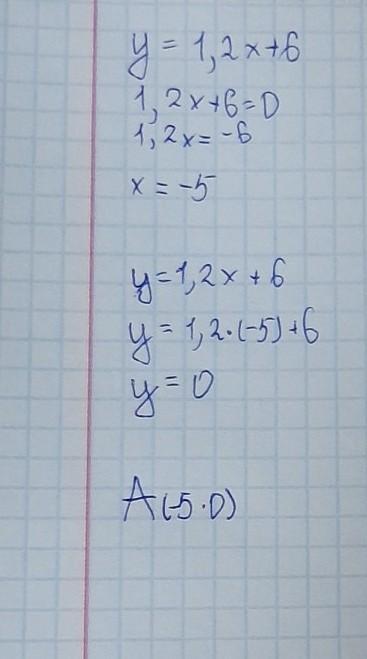 y = 1,2x+6
1,2x+6=0
1,2x=-6
x = -5
y=1,2x + 6
y = 1,2·(-5)+6
y = 0
A(-5·0)